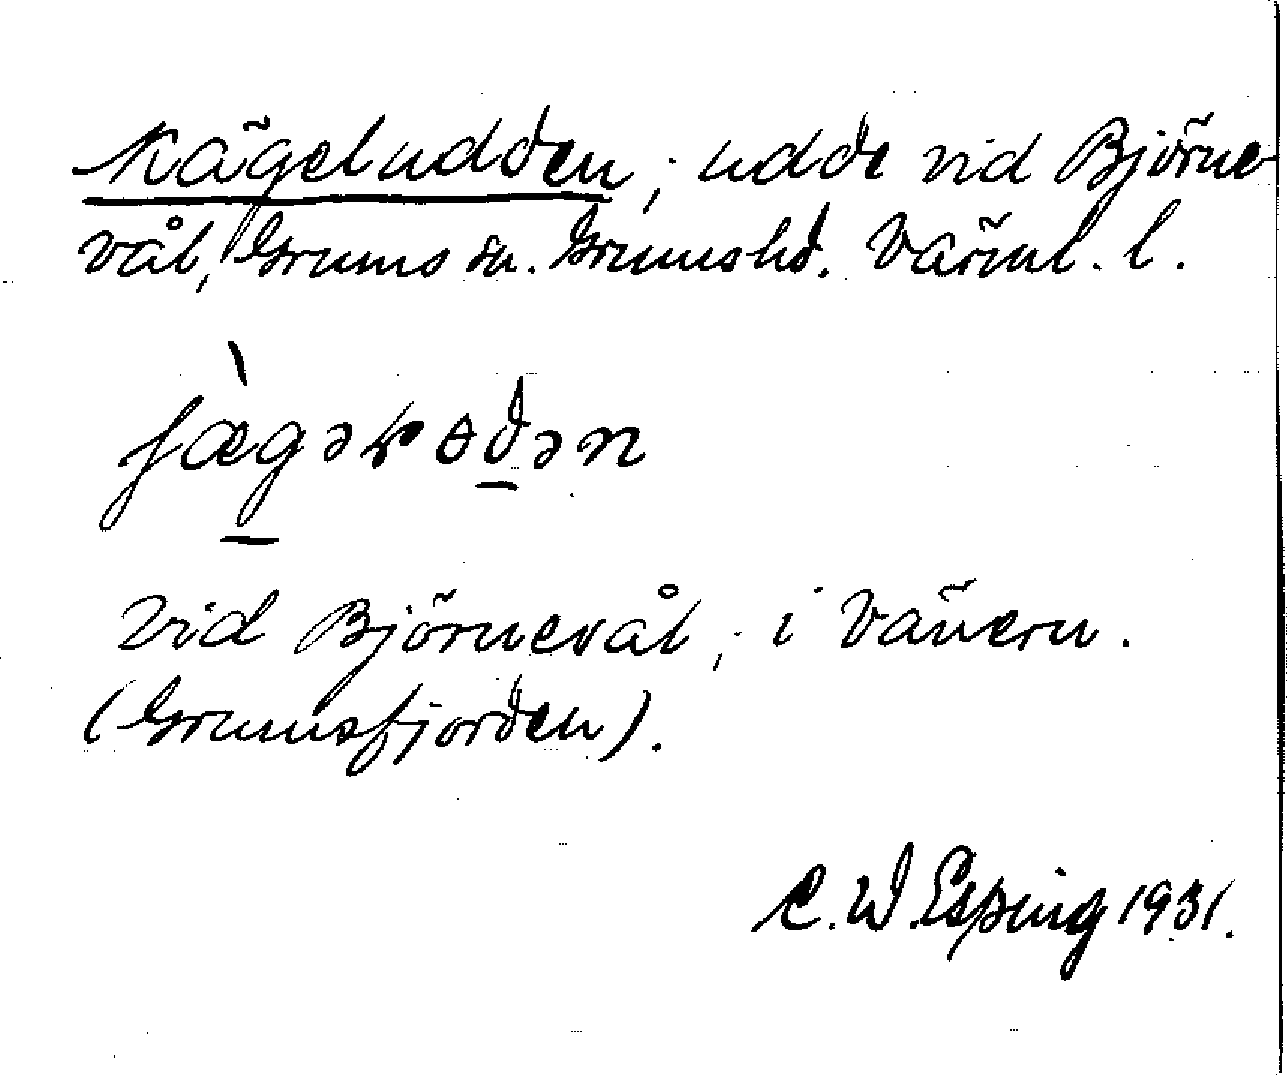 Kägeludden, udde vid Björne-
vål, Grums sn. Grums hd. Värml. l.
fæ̀gəɽɵdən
Vid Björnevål, i Vänern.
(Grumsfjorden).
C. W. Esping 1931.